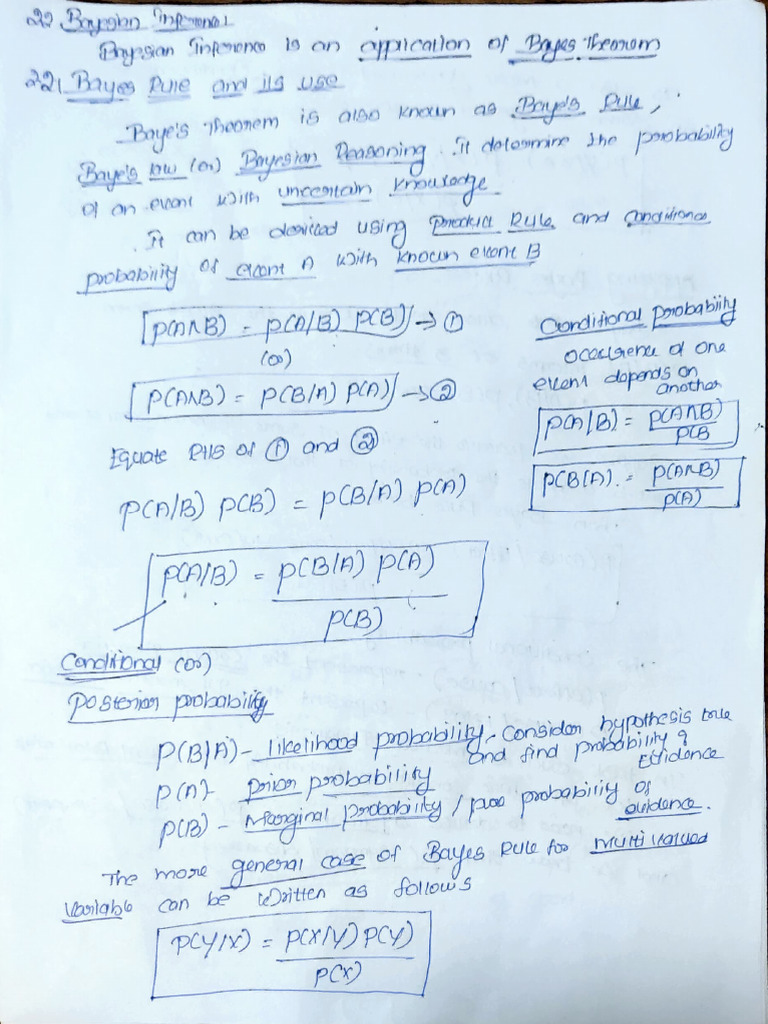 2.2 Baysian Inference
Baysian Inference is an application of Bayes Theorem
2.2.1 Bayes Rule and its use
Baye's Theorem is also known as Baye's Rule,
Baye's law (or) Bayesian Reasoning. It determine the probability
of an event with uncertain knowledge
It can be derived using product Rule and conditional
probability of event A with known event B
P(A∧B) = P(A/B) P(B) → ①
(or)
P(A∧B) = P(B/A) P(A) → ②
Equate RHS of ① and ②
P(A/B) P(B) = P(B/A) P(A)
Conditional probability
occurrence of one
event depends on
another
P(A/B) = P(A∧B)
P(B
P(B/A) = P(A∧B)
P(A)
P(A/B) = P(B/A) P(A)
P(B)
Conditional (or)
Posterior probability
P(B/A) - likelihood probability - consider hypothesis true
and find probability of
Evidence
P(A) - prior probability
P(B) - Marginal probability / pure probability of
evidence.
The more general case of Bayes Rule for Multivalued
variable can be written as follows
P(Y/X) = P(X/Y) P(Y)
P(X)